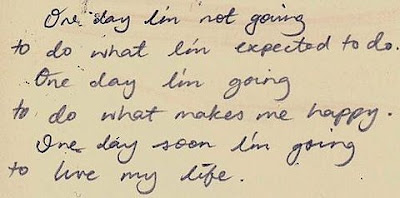 One day I'm not going
to do what I'm expected to do.
One day I'm going
to do what makes me happy.
One day soon I'm going
to live my life.